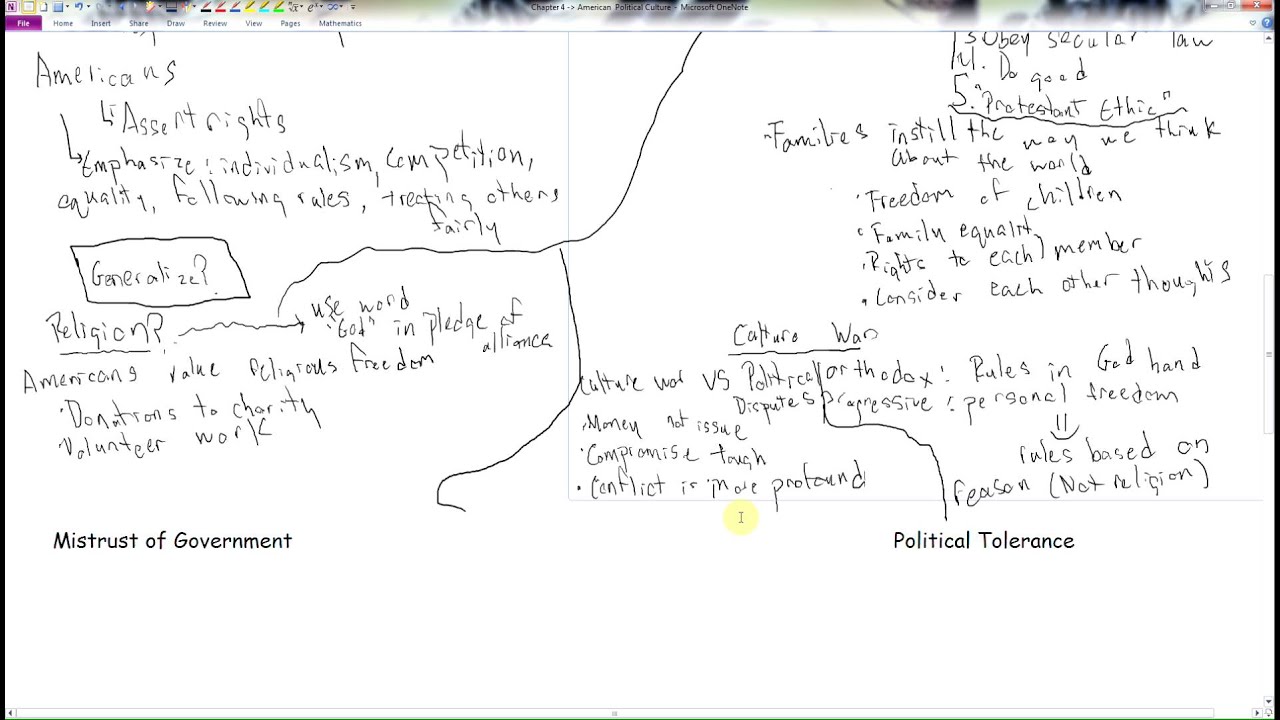 Chapter 4 -> American Political Culture - Microsoft OneNote
File Home Insert Share Draw Review View Pages Mathematics
Americans
Assert rights
Emphasize: individualism, competition,
equality, following rules, treating others
fairly
Generalize?
Religion?
use word
"God" in pledge of
alliance
Americans value Religious Freedom
Donations to charity
Volunteer work
3 Obey secular law
4. Do good
5. "Protestant Ethic"
Families instill the way we think
about the world
Freedom of children
Family equality
Rights to each member
Consider each other thoughts
Culture War
Culture war VS Political
Disputes
Money not issue
Compromise tough
Conflict is more profound
orthodox: Rules in God hand
Progressive: personal freedom
rules based on
reason (Not religion)
Mistrust of Government
Political Tolerance